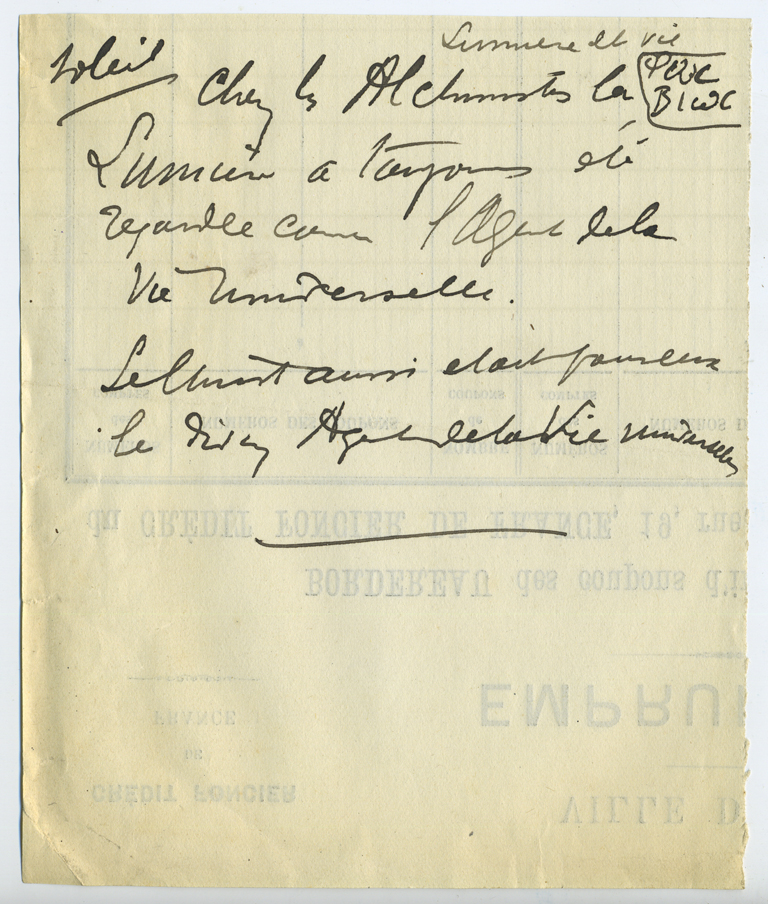 Lumiere et vie
Soleil
Chez les Alchimistes la
ΦΩΣ
ΒΙΩΣ
Lumière a toujours été
regardée comme l'Agent de la
Vie Universelle.
Le Christ aussi était pour eux
le Agent de la Vie universelle
NUMÉROS DES COUPONS
du CRÉDIT FONCIER DE FRANCE, 19, rue
BORDEREAU des coupons d'i
EMPRU
FRANCE
DE
CRÉDIT FONCIER
VILLE D